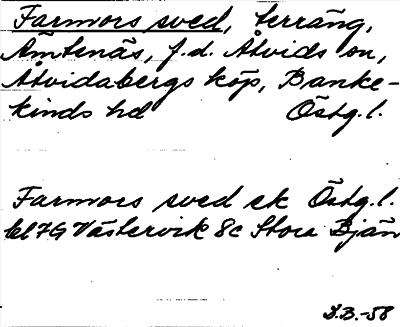 Farmors sved, terräng,
Åmtenäs, f.d. Åtvids sn,
Åtvidabergs köp, Banke-
kinds hd Östg.l.
Farmors sved ek Östg.l.
bl 7G Västervik 8c Stora Bjän
S.B.-58